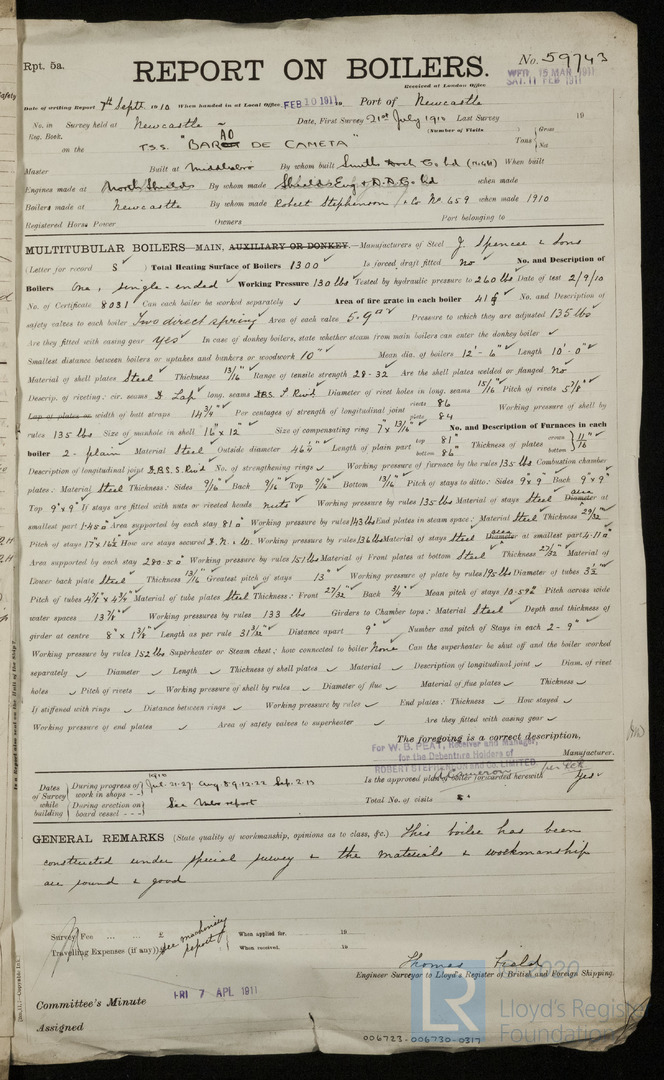 Rpt. 5a.
No. 59743
REPORT ON BOILERS.
Received at London Office
WED. 15 MAR 1911
SAT. 11 FEB 1911
Date of writing Report 7th Septr 1910 When handed in at Local Office FEB 10 1911 Port of Newcastle
No. in Survey held at Newcastle Date, First Survey 21st July 1910 Last Survey 19
Reg. Book. (Number of Visits
on the T.S.S. "BARÃO DE CAMETA" Tons { Gross Net
Master Built at Middlesbro By whom built Smiths Dock Co Ld When built
Engines made at North Shields By whom made Shields Eng & D.D. Co Ld when made
Boilers made at Newcastle By whom made Robert Stephenson & Co No. 659 when made 1910
Registered Horse Power Owners Port belonging to
MULTITUBULAR BOILERS—MAIN, AUXILIARY OR DONKEY.—Manufacturers of Steel J. Spencer & Sons
(Letter for record S) Total Heating Surface of Boilers 1300 Is forced draft fitted No No. and Description of
Boilers One, single-ended Working Pressure 130 lbs Tested by hydraulic pressure to 260 lbs Date of test 2/9/10
No. of Certificate 8031 Can each boiler be worked separately ✓ Area of fire grate in each boiler 41 No. and Description of
safety valves to each boiler Two direct spring Area of each valve 5.9 Pressure to which they are adjusted 135 lbs
Are they fitted with easing gear yes In case of donkey boilers, state whether steam from main boilers can enter the donkey boiler ✓
Smallest distance between boilers or uptakes and bunkers or woodwork 10" Mean dia. of boilers 12'-6" Length 10'-0"
Material of shell plates Steel Thickness 13/16" Range of tensile strength 28-32 Are the shell plates welded or flanged No
Descrip. of riveting: cir. seams D Lap long. seams D.B.S. T. Riv'd Diameter of rivet holes in long. seams 15/16" Pitch of rivets 5 7/8"
Lap of plates or width of butt straps 14 3/4" Per centages of strength of longitudinal joint rivets 86 plate 84 Working pressure of shell by
rules 135 lbs Size of manhole in shell 16" x 12" Size of compensating ring 7" x 13/16" No. and Description of Furnaces in each
boiler 2 - plain Material Steel Outside diameter 46 1/4" Length of plain part top 81" bottom 86" Thickness of plates crown bottom } 11/16"
Description of longitudinal joint D.B.S. S. Riv'd No. of strengthening rings ✓ Working pressure of furnace by the rules 135 lbs Combustion chamber
plates: Material Steel Thickness: Sides 9/16" Back 9/16" Top 9/16" Bottom 13/16" Pitch of stays to ditto: Sides 9" x 9" Back 9" x 9"
Top 9" x 9" If stays are fitted with nuts or riveted heads nuts Working pressure by rules 135 lbs Material of stays Steel area Diameter at
smallest part 1.45 Area supported by each stay 81 Working pressure by rules 143 lbs End plates in steam space: Material Steel Thickness 29/32"
Pitch of stays 17" x 16 1/2" How are stays secured D.N. & W. Working pressure by rules 136 lbs Material of stays Steel area Diameter at smallest part 4.11
Area supported by each stay 280.50 Working pressure by rules 151 lbs Material of Front plates at bottom Steel Thickness 27/32" Material of
Lower back plate Steel Thickness 13/16" Greatest pitch of stays 13" Working pressure of plate by rules 195 lbs Diameter of tubes 3 1/2"
Pitch of tubes 4 7/8" x 4 3/4" Material of tube plates Steel Thickness: Front 27/32" Back 3/4" Mean pitch of stays 10.592 Pitch across wide
water spaces 13 7/8" Working pressures by rules 133 lbs Girders to Chamber tops: Material Steel Depth and thickness of
girder at centre 8" x 1 3/8" Length as per rule 31 3/32" Distance apart 9" Number and pitch of Stays in each 2 - 9"
Working pressure by rules 152 lbs Superheater or Steam chest; how connected to boiler None Can the superheater be shut off and the boiler worked
separately ✓ Diameter ✓ Length ✓ Thickness of shell plates ✓ Material ✓ Description of longitudinal joint ✓ Diam. of rivet
holes ✓ Pitch of rivets ✓ Working pressure of shell by rules ✓ Diameter of flue ✓ Material of flue plates ✓ Thickness ✓
If stiffened with rings ✓ Distance between rings ✓ Working pressure by rules ✓ End plates: Thickness ✓ How stayed ✓
Working pressure of end plates ✓ Area of safety valves to superheater ✓ Are they fitted with easing gear ✓
The foregoing is a correct description,
For W. B. PEAT, Receiver and Manager,
for the Debenture Holders of
ROBERT STEPHENSON and CO. LIMITED.
Manufacturer.
Dates of Survey while building { During progress of work in shops - - 1910 Jul. 21. 27. Aug. 8. 9. 12. 22. Sep. 2. 13 Is the approved plan of boiler forwarded herewith yes
During erection on board vessel - - - See Mchy report Total No. of visits 8
GENERAL REMARKS (State quality of workmanship, opinions as to class, &c.) This boiler has been
constructed under special survey & the materials & workmanship
are sound & good
Survey Fee ... ... £ See machinery report When applied for. 19
Travelling Expenses (if any) £ When received. 19
Thomas Field
Engineer Surveyor to Lloyd's Register of British and Foreign Shipping.
Committee's Minute FRI 7 APL 1911
Assigned
© 2020
LR
Lloyd's Register
Foundation
006723-006730-0317